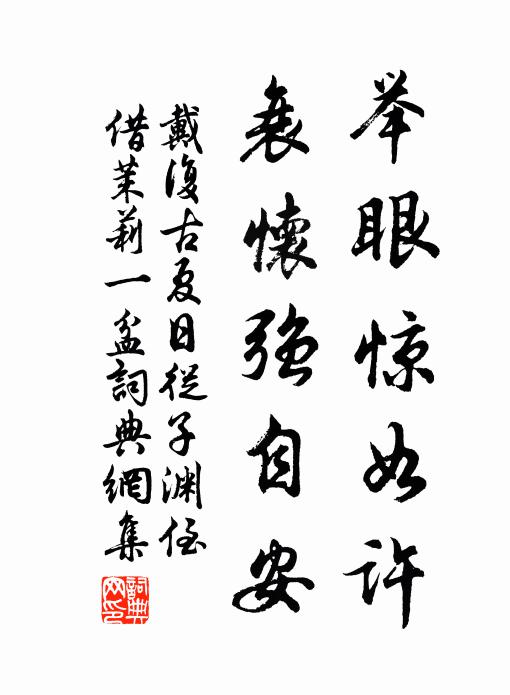 举眼惊如许
衰懷强自安
戴復古夏日從子渊侄
借茉莉一盆詞典網集
詞典网印